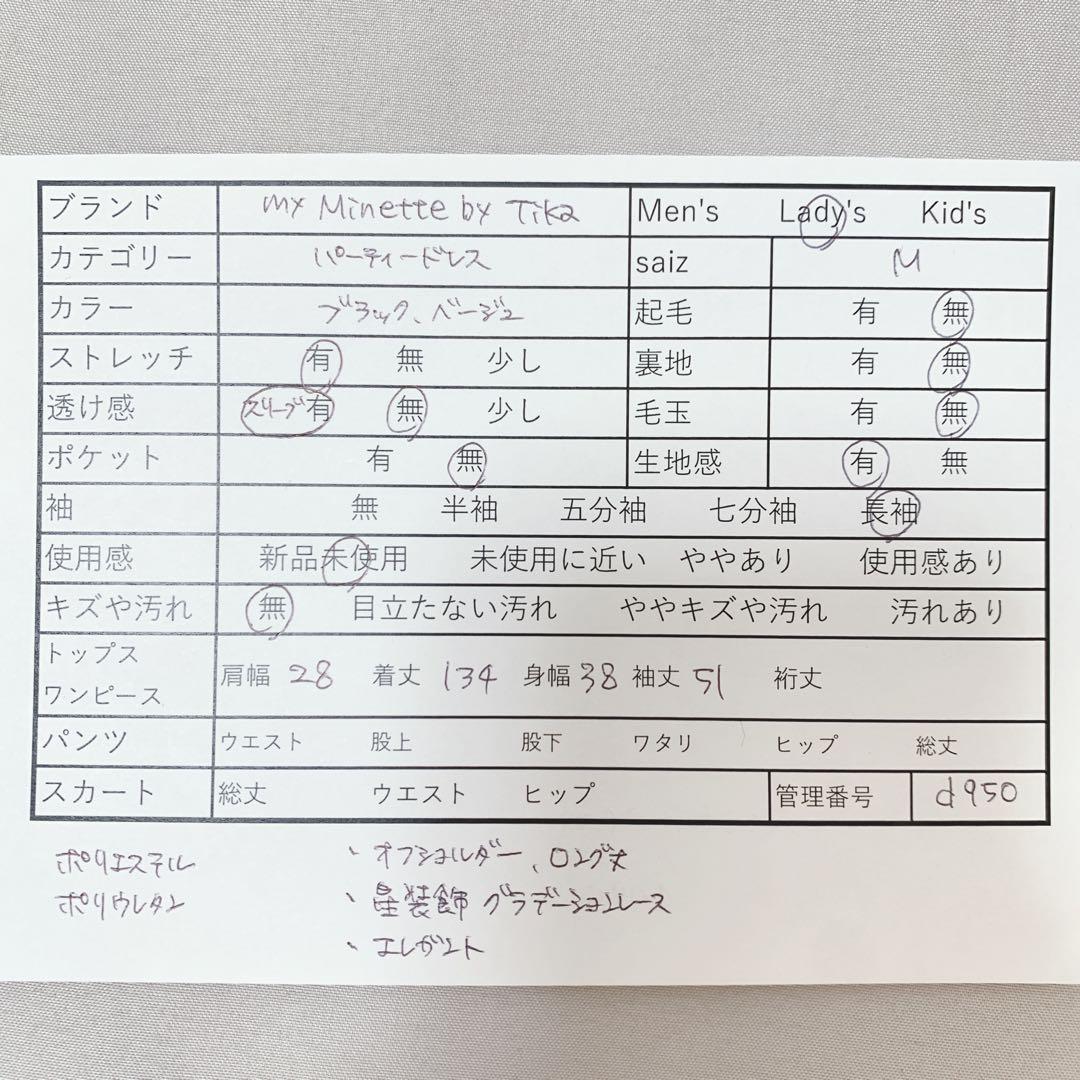 ブランド my Minette by Tika Men's Lady's Kid's
カテゴリー パーティードレス saiz M
カラー ブラック、ベージュ 起毛 有 無
ストレッチ 有 無 少し 裏地 有 無
透け感 スリーブ 有 無 少し 毛玉 有 無
ポケット 有 無 生地感 有 無
袖 無 半袖 五分袖 七分袖 長袖
使用感 新品未使用 未使用に近い ややあり 使用感あり
キズや汚れ 無 目立たない汚れ ややキズや汚れ 汚れあり
トップス
ワンピース 肩幅 28 着丈 134 身幅 38 袖丈 51 裄丈
パンツ ウエスト 股上 股下 ワタリ ヒップ 総丈
スカート 総丈 ウエスト ヒップ 管理番号 d950
ポリエステル
ポリウレタン
、オフショルダー、ロング丈
、星装飾 グラデーションレース
、エレガント